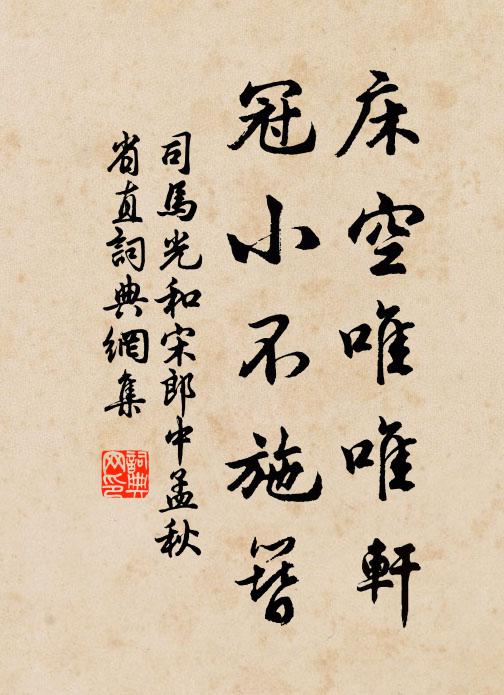 床空唯唯軒
冠小不施簪
司馬光和宋郎中孟秋
省直詞典網集
詞典网印